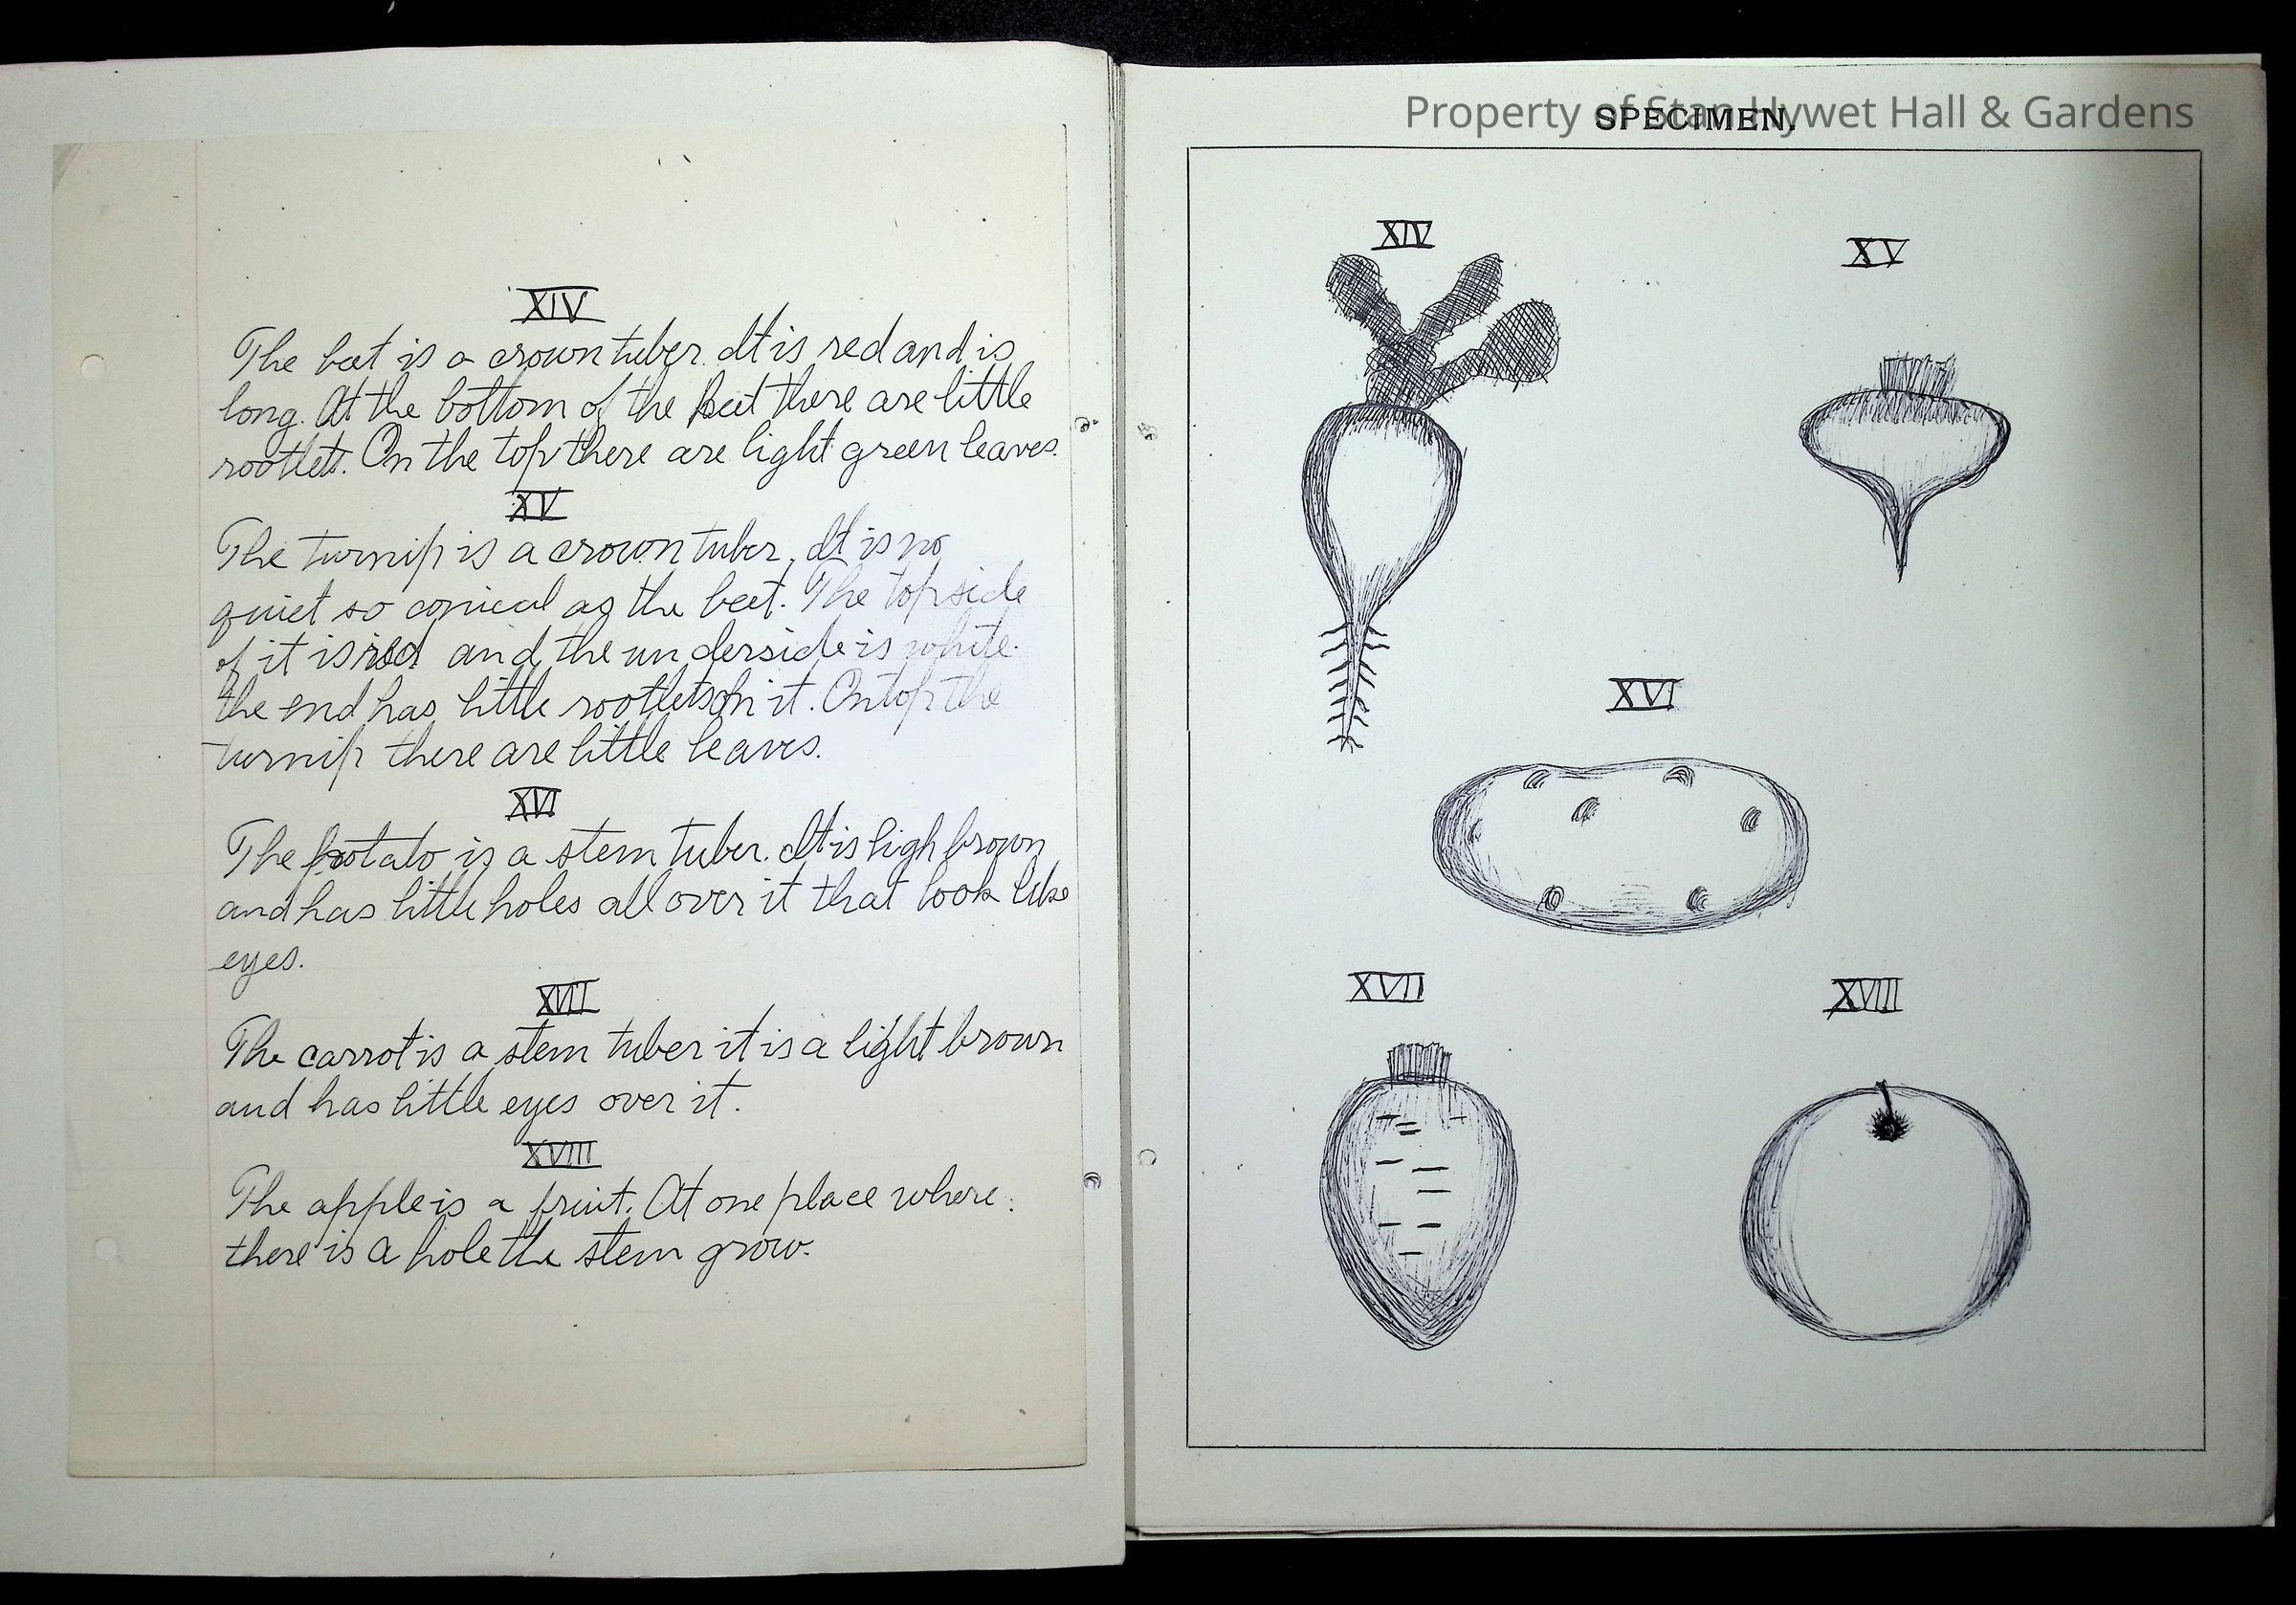 XIV
The beet is a crown tuber. It is red and is
long. At the bottom of the beet there are little
rootlets. On the top there are light green leaves.
XV
The turnip is a crown tuber. It is no
quiet so conical as the beet. The topside
of it is red and the underside is white.
the end has little rootlets on it. On top the
turnip there are little leaves.
XVI
The potato is a stem tuber. It is ligh brown
and has little holes all over it that look like
eyes.
XVII
The carrot is a stem tuber it is a light brown
and has little eyes over it.
XVIII
The apple is a fruit. At one place where
there is a hole the stem grow.
Property of Stan Hywet Hall & Gardens
SPECIMEN.
XIV
XV
XVI
XVII
XVIII